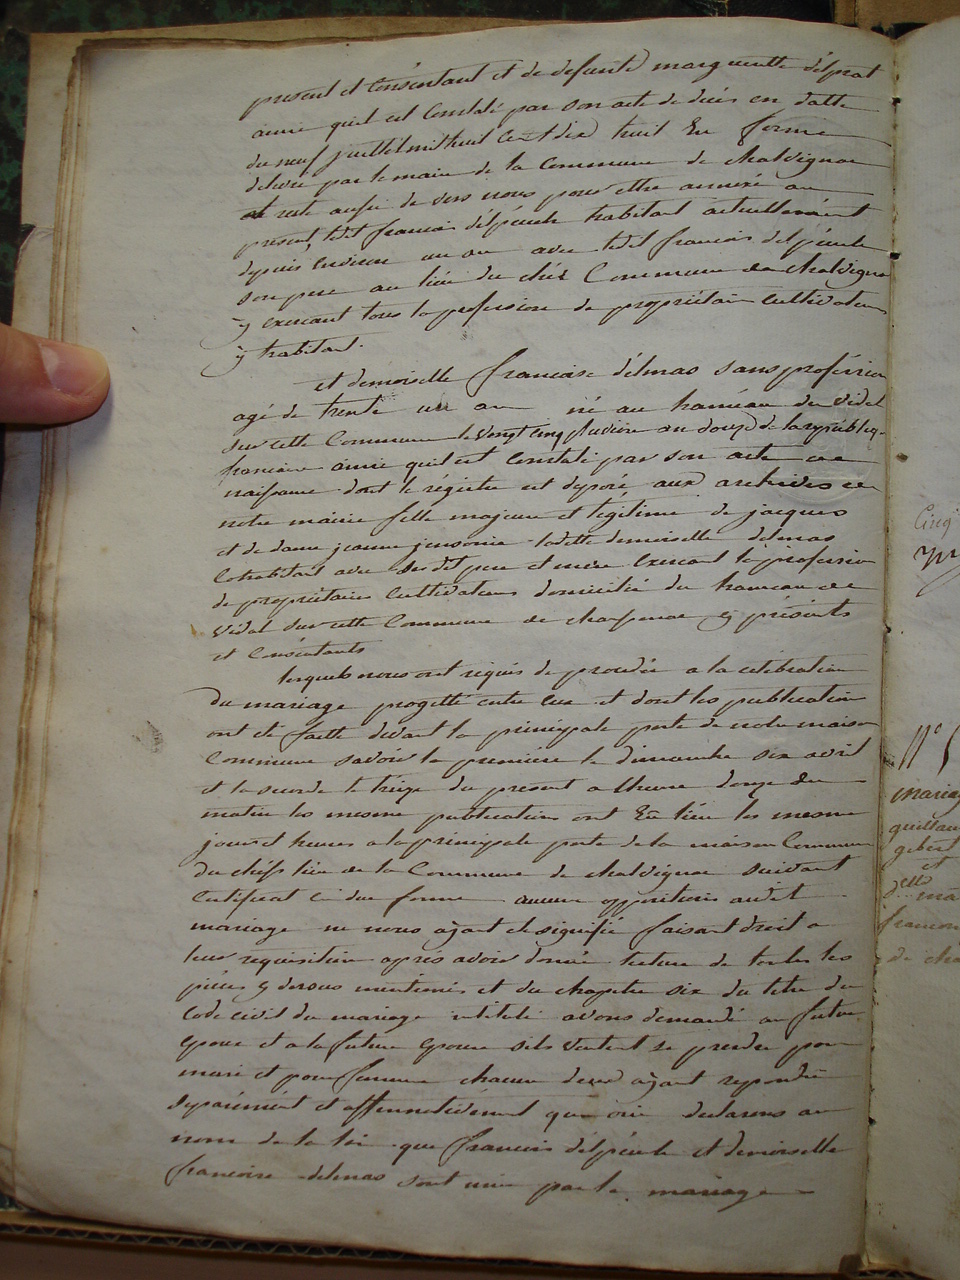 present et consentant et de defunte marguerite delprat
ainsi quil est constaté par son acte de décés en datte
du neuf juillet mil huit cent dix huit En forme
delivré par le maire de la Commune de chalvignac
et resté aussi de vers nous pour etre annéxé au
present, ledit francois delpeuch habitant actuellement
depuis environ un an avec ledit francois delpeuch
son pere au lieu du chéz Commune de chalvignac
y exercant tous la profession de propriétaire cultivateur
y habitant.
et demoiselle francoise délmas sans proféssion
agé de trente un an né au hameau de vidal
sur cette Commune le vingt cinq pluviose an douze de la républiq.
francaise ainsi quil est constaté par son acte de
naissance dont le régistre est déposé aux archives de
notre mairie fille majeure et légitime de jacques
et de dame jeanne ladette demoiselle delmas
Cohabitant avec ses dit pere et mere Exercant la profession
de propriétaires cultivateurs domicilié du hameau de
vidal sur cette Commune de y présents
et Conséntants
lesquels nous ont requis de procéder a la célébration
du mariage progetté entre eux et dont les publication
ont été faitte devant la principale porte de notre maison
Commune savoir la premiére le dimanche six avril
et la seconde le treize du present a lheure donze du
matin les mesme publications ont Eu lieu les mesme
jours et heures a la principale porte de la maison Commune
du chéf lieu de la Commune de chalvignac suivant
Certificat en due forme aucune oppositions audit
mariage ne nous ayant été signifié faisant droit a
leur requisition aprés avoir donné lecture de toutes les
piéces y dessus mentionnés et du chapitre six du titre du
Code civil du mariage intitulé avons demandé au futur
epoux et a la future epouse sils veulent se prendre pour
mari et pour femme chacun deux ayant repondu
séparément et affirmativement que oui declarons au
nom de la loi que francois delpeuch et demoiselle
francoise delmas sont unis par le mariage
Cinq
N° 5
mariage
guillau
gibert
et
delle ma
francoi
de cha